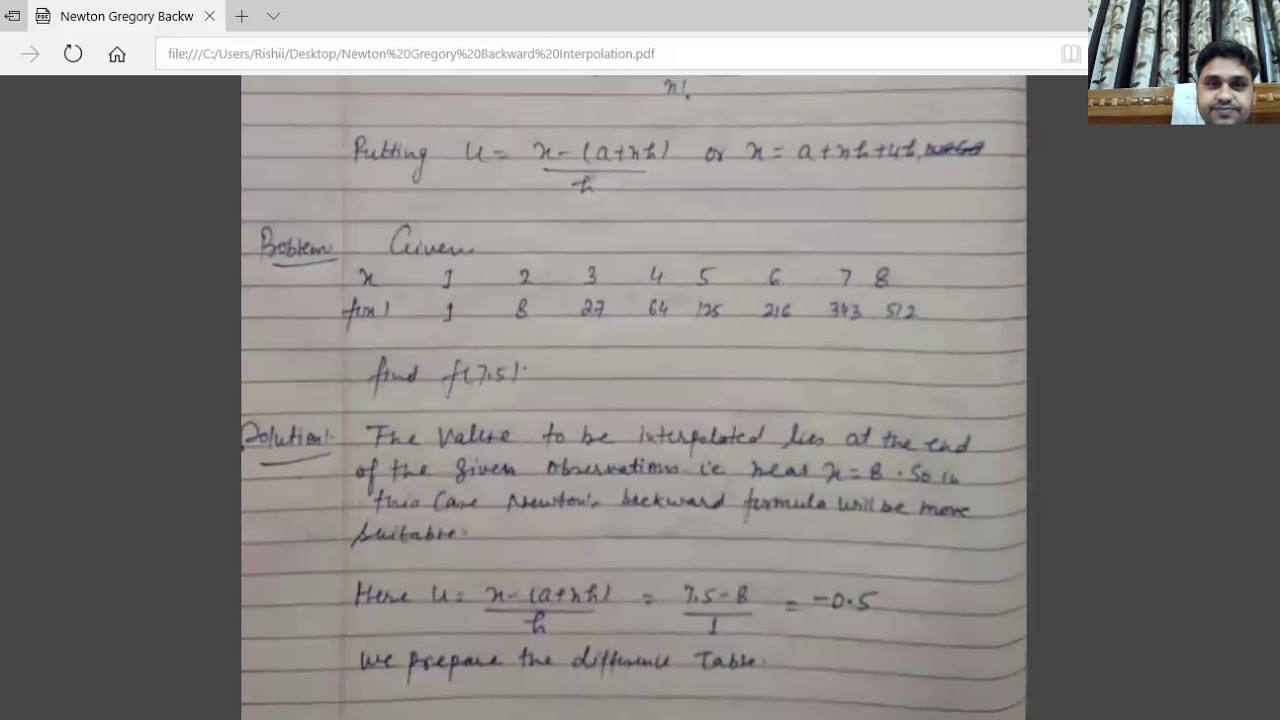 Newton Gregory Backw
file:///C:/Users/Rishii/Desktop/Newton%20Gregory%20Backward%20Interpolation.pdf
n!
Putting u = x-(a+nh)/h or x = a+nh+uh,
Problem Given
x 1 2 3 4 5 6 7 8
f(x) 1 8 27 64 125 216 343 512
find f(7.5).
Solution:- The value to be interpolated lies at the end
of the given observations i.e near x=8. So in
this case Newton's backward formula will be more
suitable.
Here u = x-(a+nh)/h = 7.5-8/1 = -0.5
We prepare the difference Table.